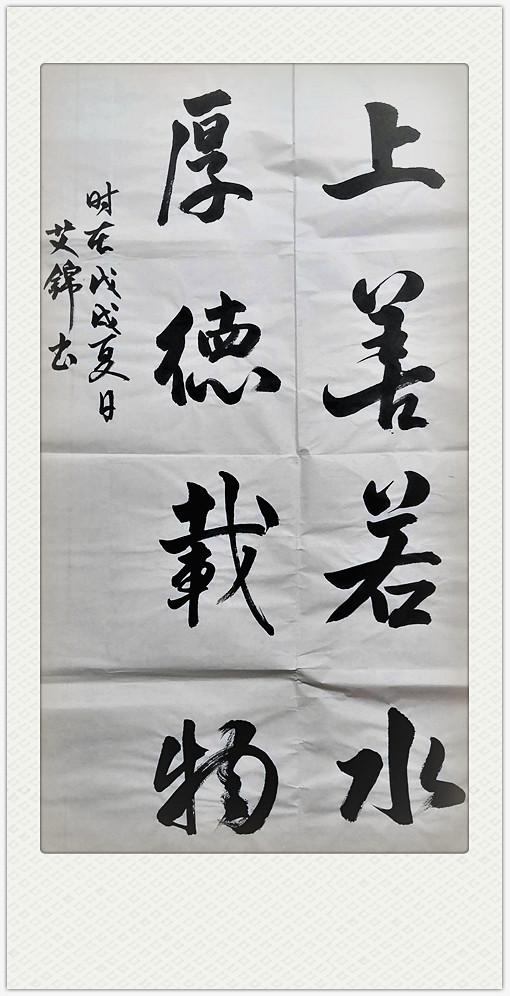 上善若水
厚德載物
时在戊戌夏日
艾錦书